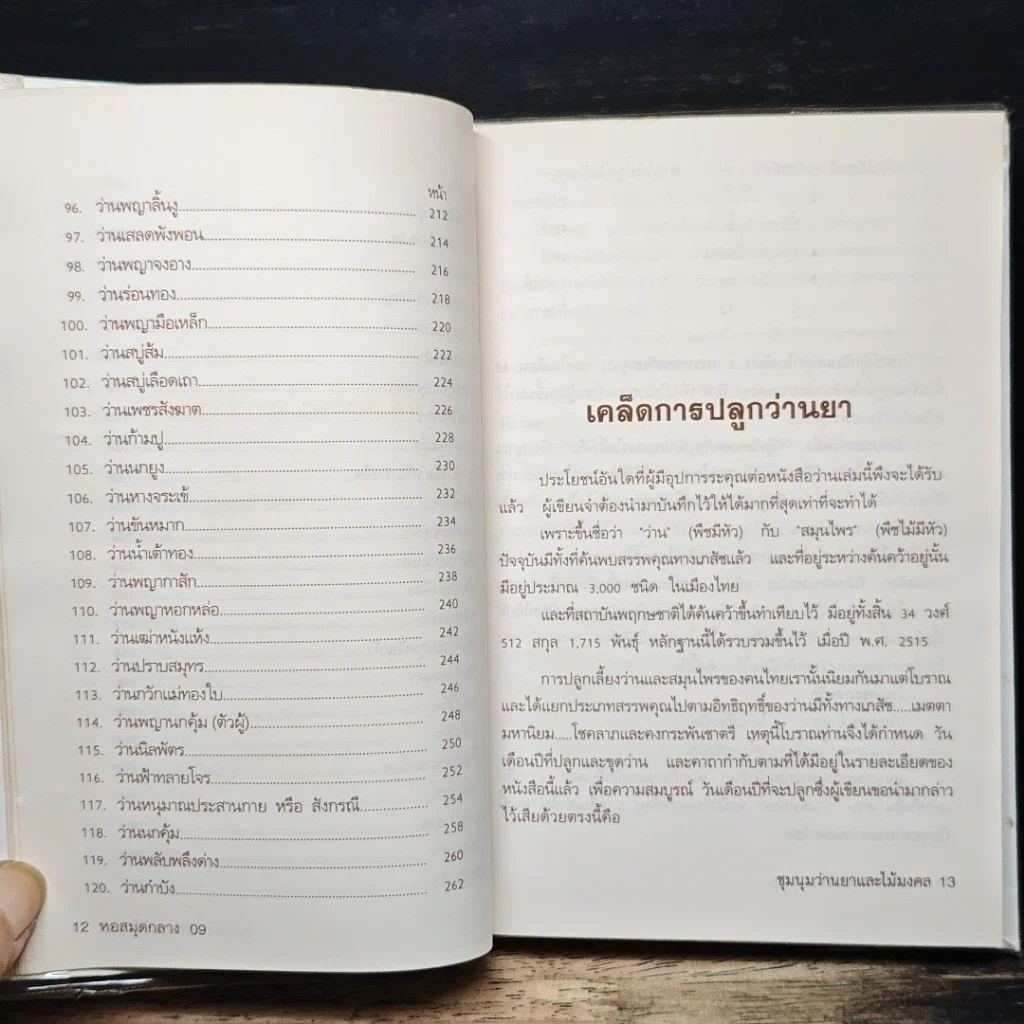 หน้า
96. ว่านพญาลิ้นงู........212
97. ว่านเสลดพังพอน........214
98. ว่านพญาจงอาง........216
99. ว่านร่อนทอง........218
100. ว่านพญามือเหล็ก........220
101. ว่านสบู่ส้ม........222
102. ว่านสบู่เลือดเถา........224
103. ว่านเพชรสังฆาต........226
104. ว่านก้ามปู........228
105. ว่านนกยูง........230
106. ว่านหางจระเข้........232
107. ว่านขันหมาก........234
108. ว่านน้ำเต้าทอง........236
109. ว่านพญากาสัก........238
110. ว่านพญาหอกหล่อ........240
111. ว่านเฒ่าหนังแห้ง........242
112. ว่านปราบสมุทร........244
113. ว่านกวักแม่ทองใบ........246
114. ว่านพญานกคุ้ม (ตัวผู้)........248
115. ว่านนิลพัตร........250
116. ว่านฟ้าทลายโจร........252
117. ว่านหนุมาณประสานกาย หรือ สังกรณี........254
118. ว่านนกคุ้ม........258
119. ว่านพลับพลึงด่าง........260
120. ว่านกำบัง........262
12 หอสมุดกลาง 09
เคล็ดการปลูกว่านยา
ประโยชน์อันใดที่ผู้มีอุปการระคุณต่อหนังสือว่านเล่มนี้พึงจะได้รับ
แล้ว ผู้เขียนจำต้องนำมาบันทึกไว้ให้ได้มากที่สุดเท่าที่จะทำได้
เพราะขึ้นชื่อว่า "ว่าน" (พืชมีหัว) กับ "สมุนไพร" (พืชไม้มีหัว)
ปัจจุบันมีทั้งที่ค้นพบสรรพคุณทางเภสัชแล้ว และที่อยู่ระหว่างค้นคว้าอยู่นั้น
มีอยู่ประมาณ 3,000 ชนิด ในเมืองไทย
และที่สถาบันพฤกษชาติได้ค้นคว้าขึ้นทำเทียบไว้ มีอยู่ทั้งสิ้น 34 วงศ์
512 สกุล 1,715 พันธุ์ หลักฐานนี้ได้รวบรวมขึ้นไว้ เมื่อปี พ.ศ. 2515
การปลูกเลี้ยงว่านและสมุนไพรของคนไทยเรานั้นนิยมกันมาแต่โบราณ
และได้แยกประเภทสรรพคุณไปตามอิทธิฤทธิ์ของว่านมีทั้งทางเภสัช.....เมตตา
มหานิยม.....โชคลาภและคงกระพันชาตรี เหตุนี้โบราณท่านจึงได้กำหนด วัน
เดือนปีที่ปลูกและขุดว่าน และคาถากำกับตามที่ได้มีอยู่ในรายละเอียดของ
หนังสือนี้แล้ว เพื่อความสมบูรณ์ วันเดือนปีที่จะปลูกซึ่งผู้เขียนขอนำมากล่าว
ไว้เสียด้วยตรงนี้คือ
ชุมนุมว่านยาและไม้มงคล 13